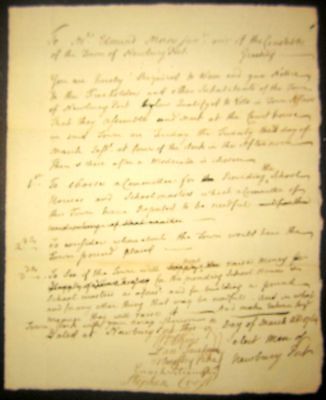 To Mr. Edmund Morss jun. one of the Constables
of the Town of Newbury Port Greeting
You are hereby Required to Warn and give Notice
to the Freeholders and other Inhabitants of the Town
of Newbury Port Qualified to Vote in Town Affairs
that they assemble and meet at the Court house
in said Town on Tuesday the Twenty third day of
March Inst at four of the Clock in the Afternoon
Then & there after a Moderator is chosen
1st To choose a Committee for the Providing School
Houses and Schoolmasters which a Committee of
this Town have Reported to be needful
2dly To consider whereabout the Town would have the
Town pound placed
3dly To See if the Town will raise money
for the providing School Houses &
School masters as aforesd and for building a pound
and for any other thing that may be needful And in what
manner they will raise it And make return
Dated at Newbury Port this day of March
Select Men of
Newbury Port
Stephen Cross